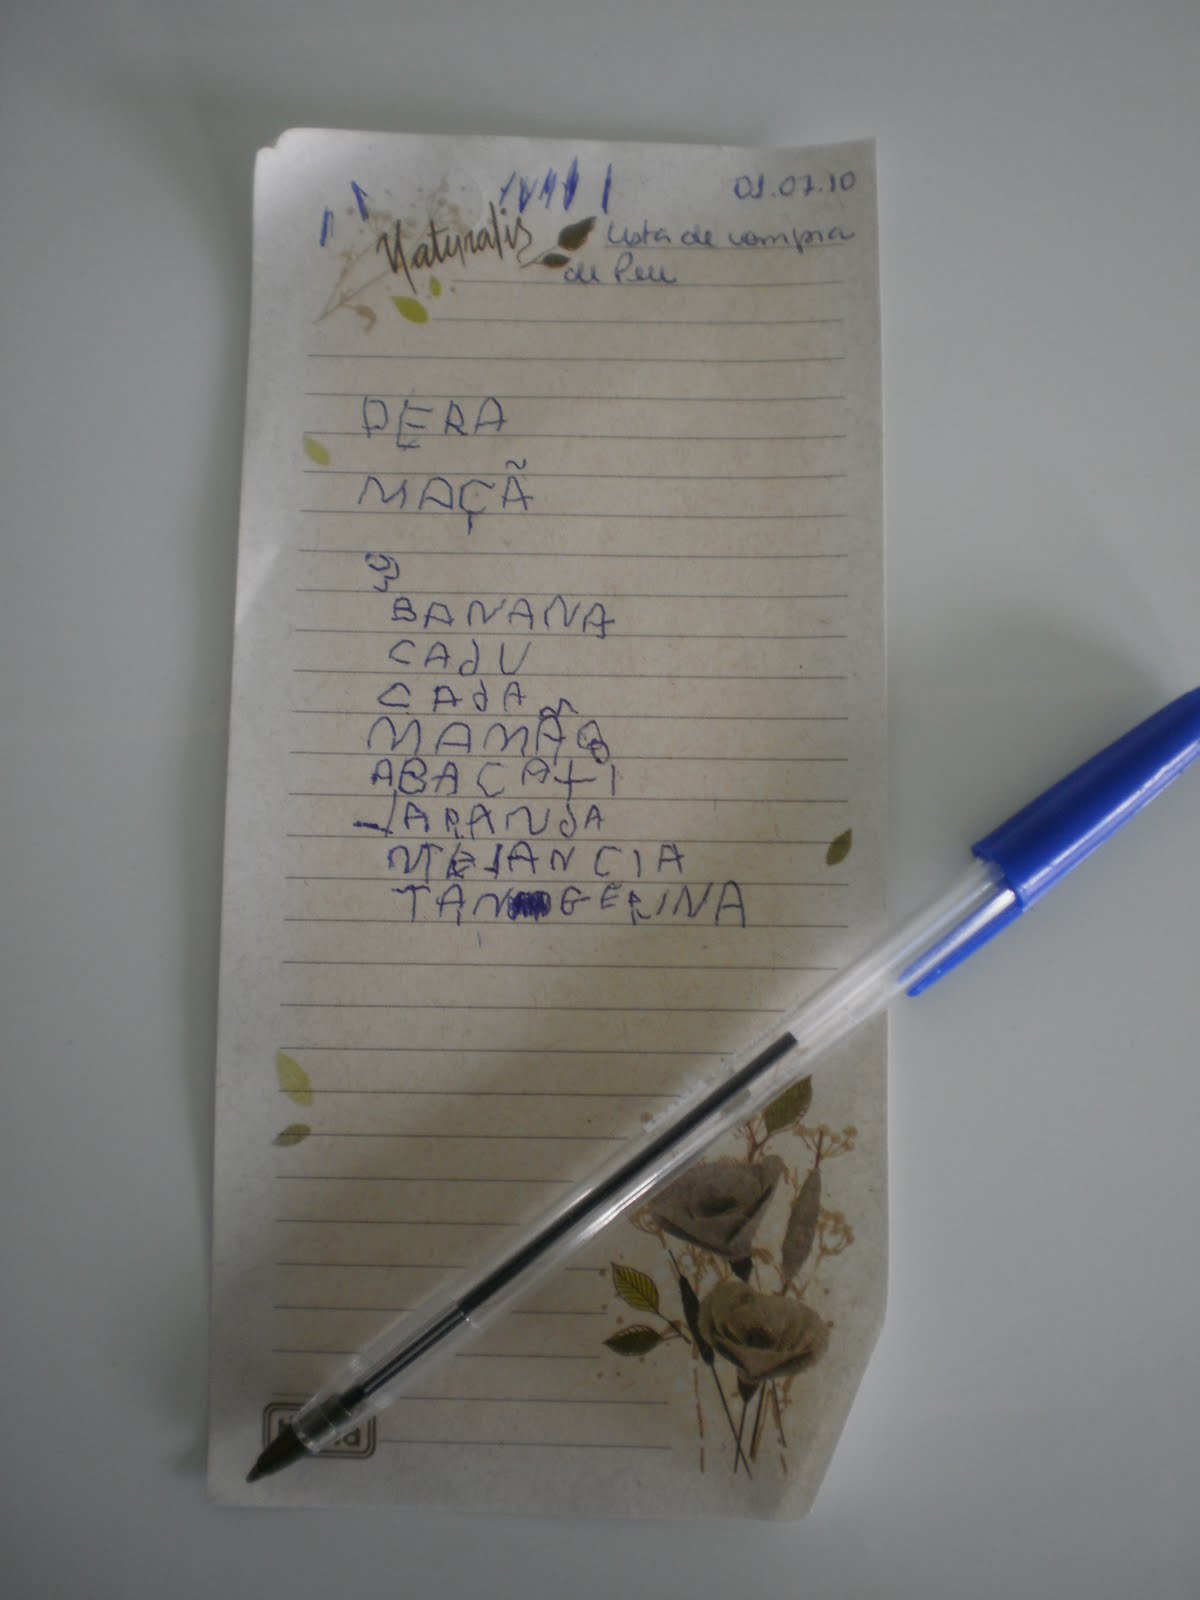 01.07.10
Naturalis
Lista de compra
de Peu
PERA
MAÇÃ
BANANA
CAJU
CAJA
MAMÃO
ABACATI
LARANJA
MELANCIA
TANGERINA